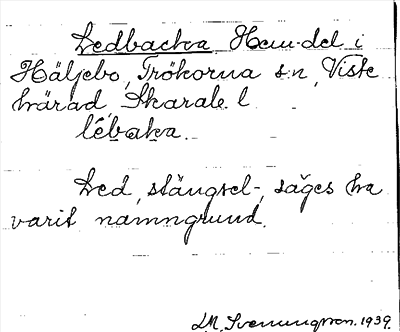 Ledbacka Hem. del i
Häljebo, Trökörna s:n, Viste
härad Skarab. l
lébaka.
Led, stängsel-, säges ha
varit namngrund.
LM. Svenungsson. 1939.